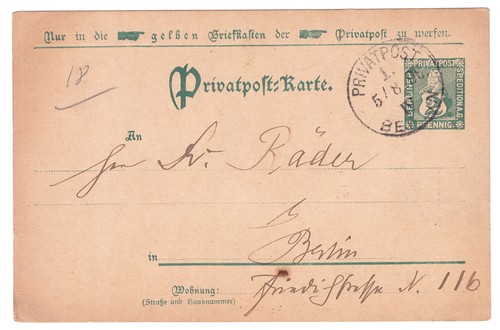 Nur in die gelben Briefkasten der Privatpost zu werfen.
18
Privatpost-Karte.
PRIVATPOST
1.
5/8
BE
BERLINER PRIVATPOST SPEDITION A.G.
PFENNIG
An
Hr. Räder
in Berlin
Wohnung: Friedrichstrasse N. 116
(Straße und Hausnummer)